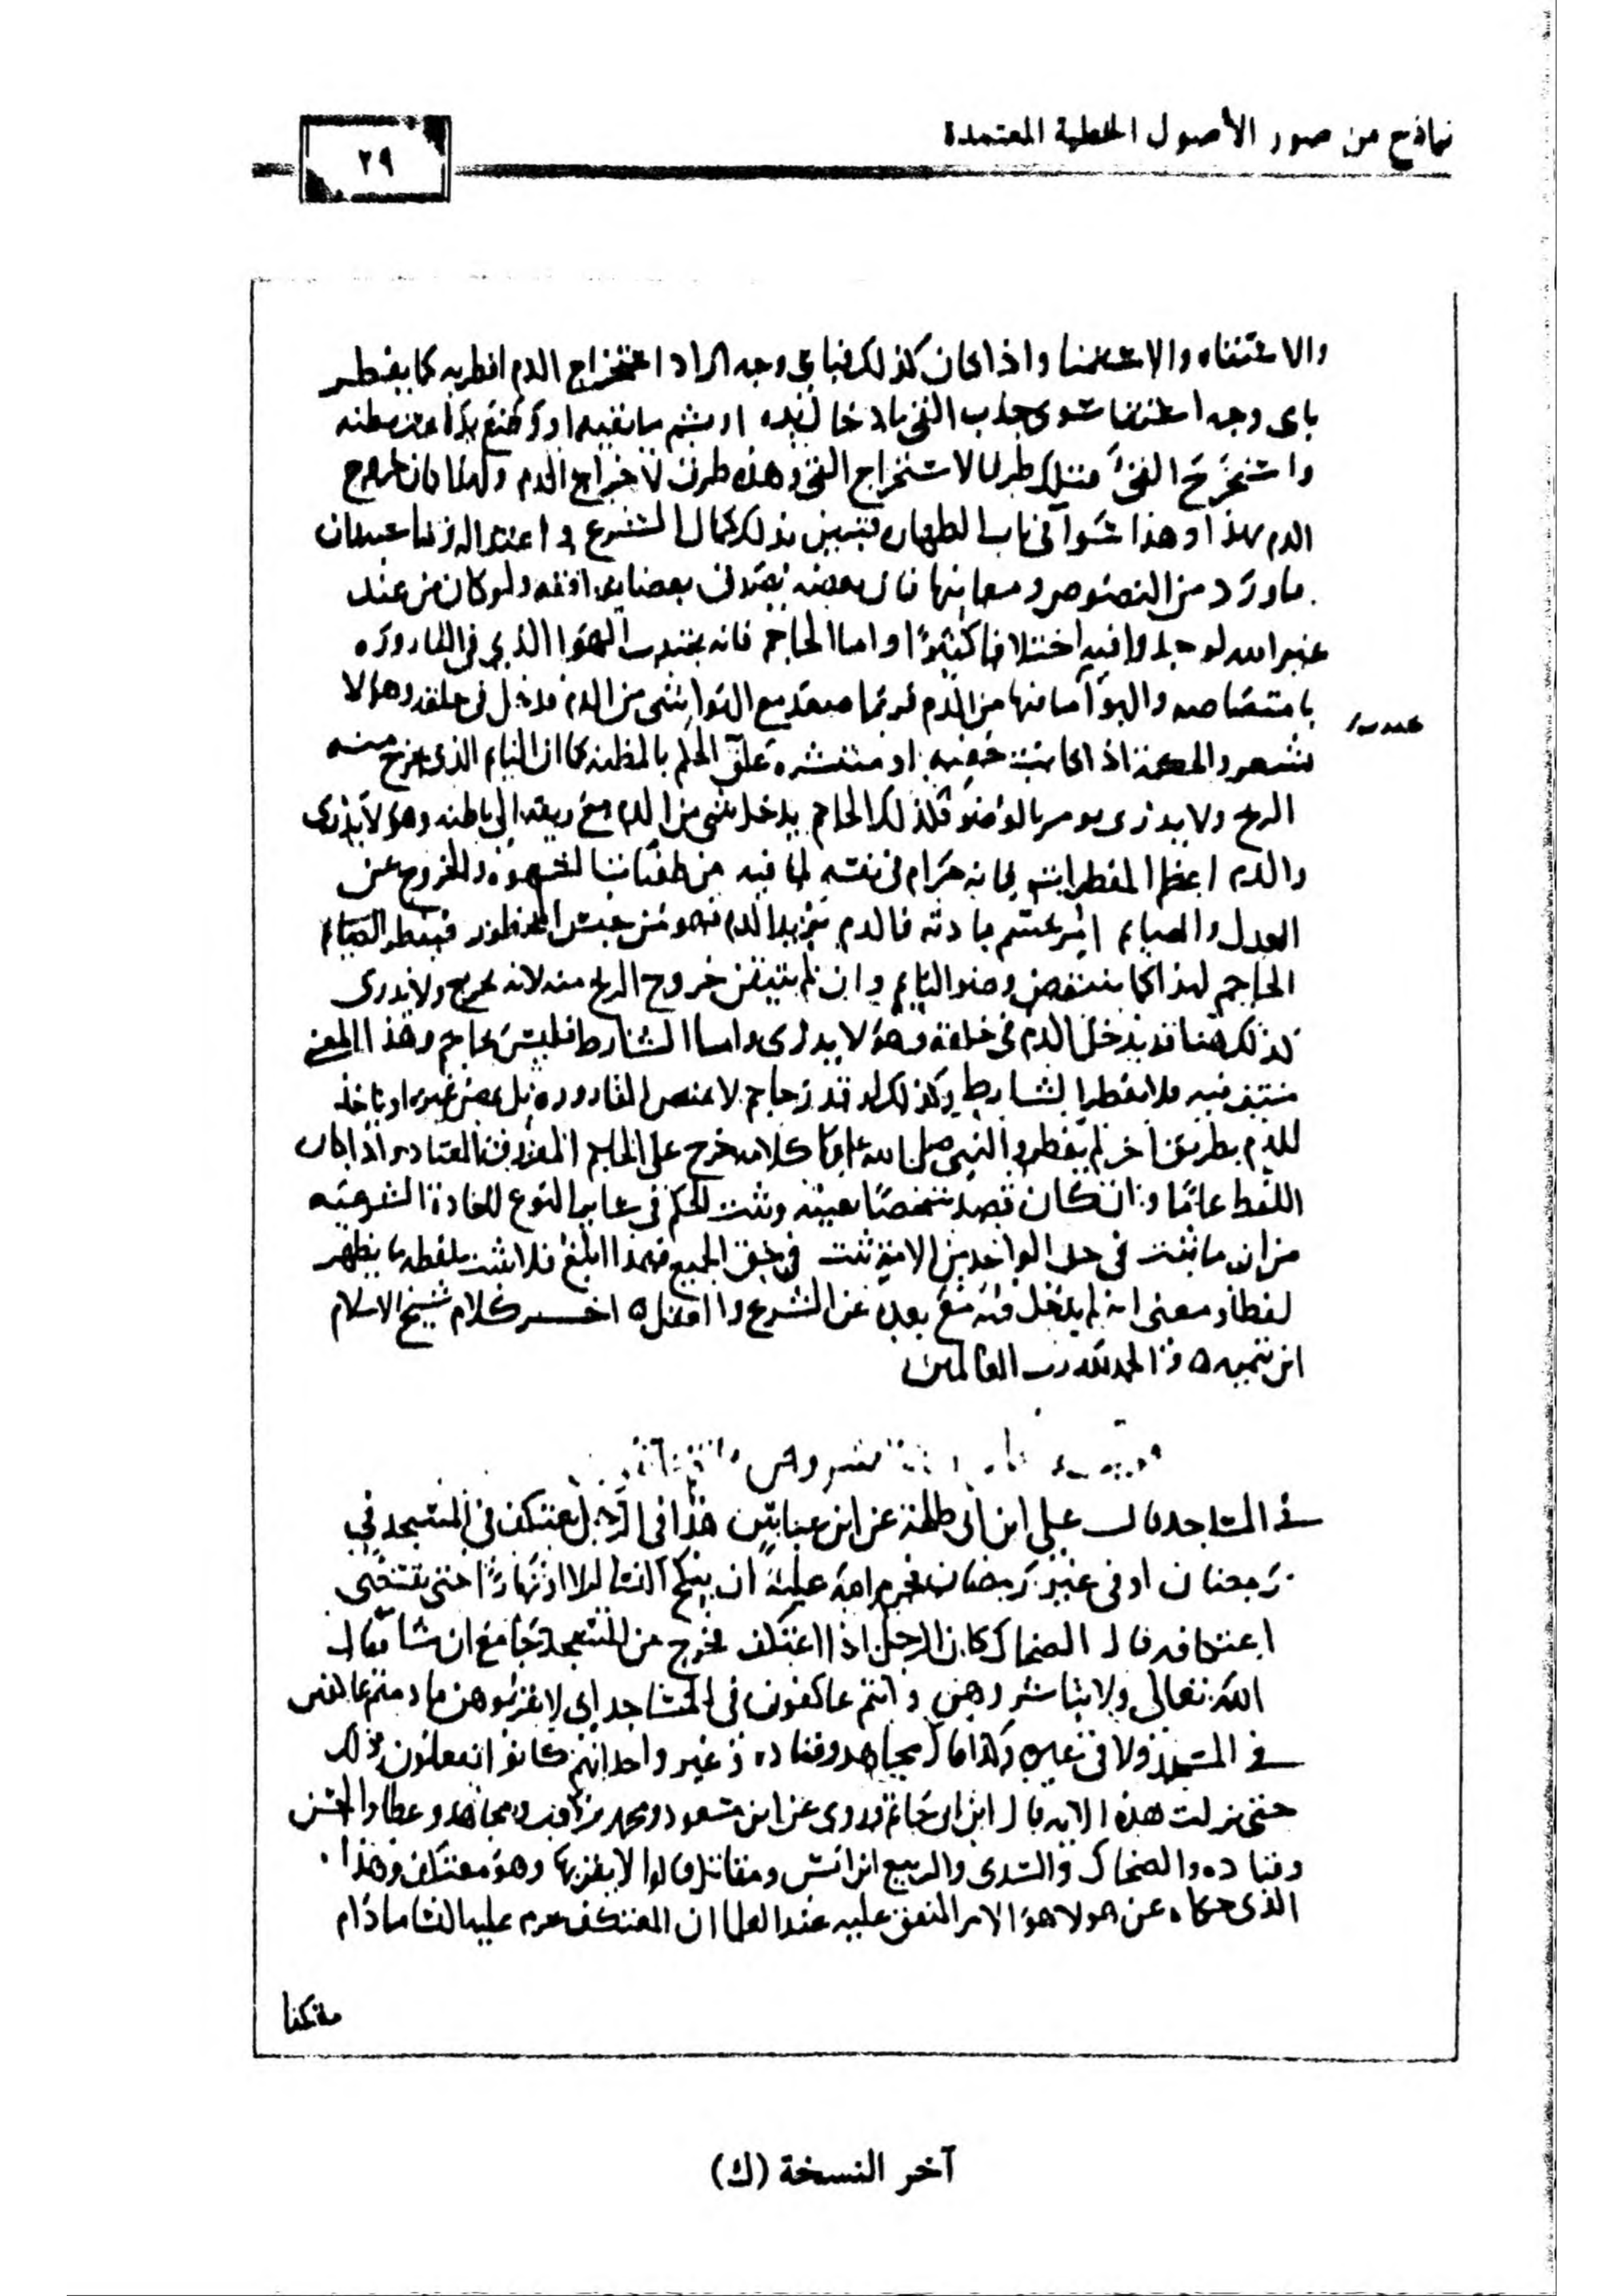 نماذج من صور الأصول الخطية المعتمدة
٢٩
والاستقاه والاستمنا واذا كان كذلك فباي وجه اراد استخراج الدم افطر به كما يفطر
باي وجه استقا سوى جذب القي بادخال يده او بشم ما يقيه او وضع يده تحت بطنه
واستخرج القيء فتلك طرق لاستخراج القي وهذه طرق لاخراج الدم ولهذا كان خروج
الدم بهذا وهذا سوآ في باب الطهاره فتبين بذلك كمال الشرع واعتداله وتناسبه وان
ما ورد من النصوص ومعانيها فان بعضه يصدق بعضا ويوافقه ولو كان من عند
غير الله لوجدوا فيه اختلافا كثيرًا واما الحاجم فانه يجتذب الهوا الذي في القاروره
بامتصاصه والهوآ يجتذب ما فيها من الدم فربما صعد مع الهوا شي من الدم ودخل في حلقه وهو لا
يشعر والحكمة اذا كانت خفيه او منتشره علق الحكم بالمظنه كما ان النايم الذي يخرج منه
الريح ولا يدري يومر بالوضو فكذلك الحاجم يدخل شي من الدم مع ريقه الى باطنه وهو لا يدري
والدم اعظم المفطرات فانه حرام في نفسه لما فيه من طغيان الشهوه والخروج عن
العدل والصايم امر بحسم مادته فالدم يزيد الدم فهو من جنس المحظور فيفطر الصايم
الحاجم لهذا كما ينتقض وضو النايم وان لم يتيقن خروج الريح منه لانه يخرج ولا يدري
كذلك هنا قد يدخل الدم في حلقه وهو لا يدري واما الشارط فليس بحاجم وهذا المعنى
منتف فيه فلا يفطر الشارط وكذلك لو قدر حاجم لا يمص القاروره بل يمص غيره او ياخذ
الدم بطريق اخر لم يفطر والنبي صلى الله عليه كلامه خرج على الحاجم المعروف المعتاد واذا كان
اللفظ عامًا وان كان قصد شخصًا بعينه وثبت الحكم في ساير النوع للعادة الشرعيه
من ان ما ثبت في حق الواحد من الامة ثبت في حق الجميع فهذا ابلغ فلا يثبت بلفظه ما يظهر
لفظا ومعنى انه لم يدخل فيه مع بعده عن الشرع والعقل ه اخر كلام شيخ الاسلام
ابن تيميه ه والحمد لله رب العالمين
في المساجد قال علي ابن ابي طلحة عن ابن عباس هذا في الرجل يعتكف في المسجد في
رمضان او في غير رمضان فحرم الله عليه ان ينكح النسا ليلا او نهارًا حتى يقضي
اعتكافه قال الضحاك كان الرجل اذا اعتكف فخرج من المسجد جامع ان شا فقال
الله تعالى ولا تباشروهن وانتم عاكفون في المساجد اي لا تقربوهن ما دمتم عاكفين
في المسجد ولا في غيره وكذا قال مجاهد وقتاده و غير واحد انهم كانوا يفعلون ذلك
حتى نزلت هذه الايه قال ابن ابي حاتم وروي عن ابن مسعود ومحمد بن كعب ومجاهد وعطا والحسن
وقتاده والضحاك والسدي والربيع ابن انس ومقاتل قالوا لا يقربها وهو معتكف وهذا
الذي حكاه عن هولا هو الامر المتفق عليه عند العلما ان المعتكف يحرم عليه النسا ما دام
آخر النسخة (ك)